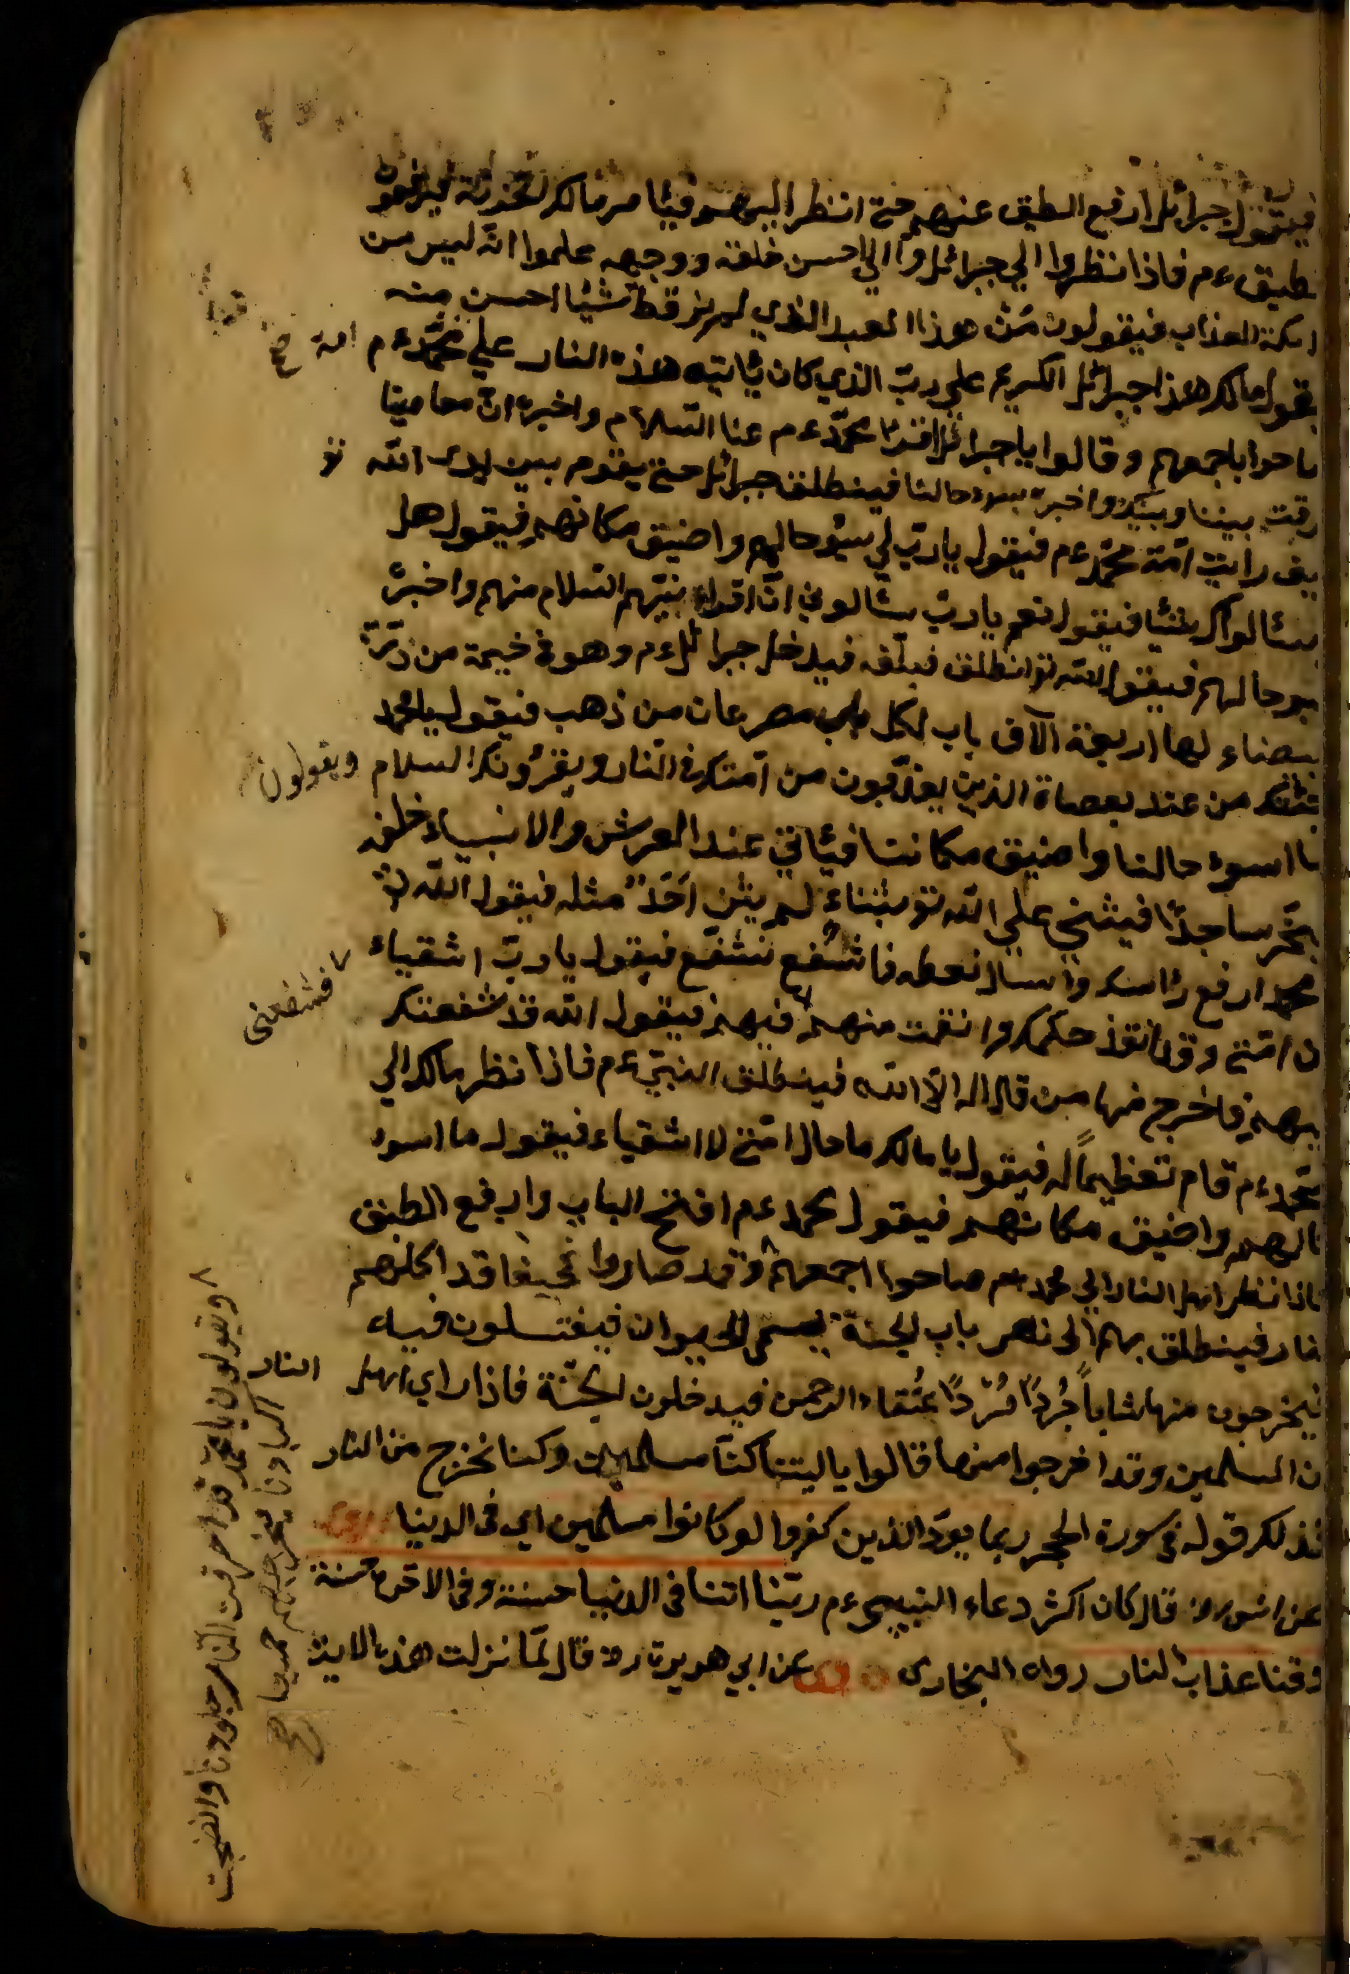 فيقول جبرائل ارفع الطبق عنهم حتى انظر اليهم فيأمر مالك لخزنة فيرفعون
طبق ءم فاذا نظروا الى جبرائل والى احسن خلقه ووجهه علموا انه ليس من
ملائكة العذاب فيقولون من هوذا العبد الذي لم نر قط شيئا احسن منه
يقول مالك هذا جبرائل الكريم على ربه الذي كان يأتيه هذه النار على محمد ءم
صاحوا باجمعهم وقالوا يا جبرائل اقرأ محمد ءم عنا السلام واخبره ان معاصينا
رقت بيننا وبينك واخبره بسوء حالنا فينطلق جبرائل حتى يقوم بين يدى الله تو
يف رايت امة محمد ءم فيقول يا رب لي سيؤ حالهم واضيق مكانهم فيقول هل
سئالوك شيئا فيقول نعم يا رب سئالوني ان اقراء نبيهم السلام منهم واخبره
سوء حالهم فيقول الله تو انطلق فبلغه فيدخل جبرائل ءم وهو في خيمة من درة
بيضاء لها اربعة آلاف باب لكل باب مصرعان من ذهب فيقول يا محمد
جئتك من عند بعصاة الذين يعذبون من امتك في النار ويقرؤنك السلام ويقولون
ما اسوء حالنا واضيق مكاننا فيئاتي عند العرش والانبياء خلفه
يخر ساجدا فيثني على الله تو بثناء لم يثن احد مثله فيقول الله تو
محمد ارفع رأسك واسال نعطه فاشفع نشفع فيقول يا رب اشقياء
ن امتي وقد انفذ حكمك وانتقمت منهم فيهم فيقول الله قد شفعتك
يهم فاخرج منها من قال لا اله الا الله فينطلق النبي ءم فاذا نظر مالك الى
محمد ءم قام تعظيما له فيقول يا مالك ما حال امتي لا اشقياء فيقول ما اسوء
حالهم واضيق مكانهم فيقول محمد ءم افتح الباب وارفع الطبق
فاذا نظر اهل النار الى محمد ءم صاحوا اجمعهم وقد صاروا قد اكلهم
النار فينطلق بهم الى نهر باب الجنة يسمى الحيوان فيغتسلون فيه
فيخرجون منها شابا جردا مردا عتقاء الرحمن فيدخلون الجنة فاذا راى اهل النار
ان المسلمين وقد اخرجوا منها قالوا يا ليتنا كنا مسلمين وكنا نخرج من النار
فذلك قوله في سورة الحجر ربما يود الذين كفروا لو كانوا مسلمين اي فى الدنيا
عن انس رض قال كان اكثر دعاء النبي ءم ربنا اتنا فى الدنيا حسنة وفى الآخرة حسنة
وقنا عذاب النار رواه البخارى عن ابي هريرة رض قال لما نزلت هذه الاية
امة صح
فشفعنى
ويقولون يا محمد قد احرقت النار جلودنا وانضجت
اكبادنا صح